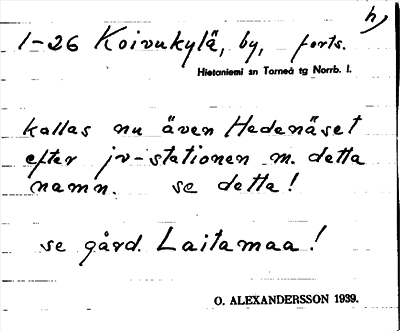 h)
1-26 Koivukylä, by, forts.
Hietaniemi sn Torneå tg Norrb. l.
kallas nu även Hedenäset
efter jv-stationen m. detta
namn. se detta!
se gård. Laitamaa!
O. ALEXANDERSSON 1939.